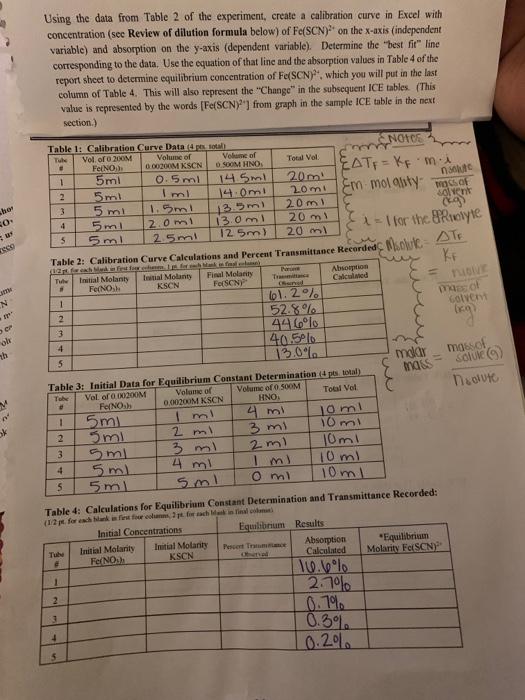 Using the data from Table 2 of the experiment, create a calibration curve in Excel with
concentration (see Review of dilution formula below) of Fe(SCN)²⁺ on the x-axis (independent
variable) and absorption on the y-axis (dependent variable). Determine the "best fit" line
corresponding to the data. Use the equation of that line and the absorption values in Table 4 of the
report sheet to determine equilibrium concentration of Fe(SCN)²⁺, which you will put in the last
column of Table 4. This will also represent the "Change" in the subsequent ICE tables. (This
value is represented by the words [Fe(SCN)²⁺] from graph in the sample ICE table in the next
section.)
Notes
ΔTF = KF · m · i
m: molality = nsolute
mass of solvent (kg)
i = 1 for the
nsolute = ΔTF
KF
= nsolute
mass of solvent (kg)
molar mass = mass of solute (g)
nsolute
Table 1: Calibration Curve Data (4 pts. total)
Tube # Vol. of 0.200M Fe(NO₃)₃ Volume of 0.00200M KSCN Volume of 0.500M HNO₃ Total Vol.
1 5ml 0.5ml 14.5ml 20ml
2 5ml 1ml 14.0ml 20ml
3 5ml 1.5ml 13.5ml 20ml
4 5ml 2.0ml 13.0ml 20ml
5 5ml 2.5ml 12.5ml 20ml
Table 2: Calibration Curve Calculations and Percent Transmittance Recorded:
Tube # Initial Molarity Fe(NO₃)₃ Initial Molarity KSCN Final Molarity Fe(SCN)²⁺ Percent Transmittance Observed Absorption Calculated
1 61.2%
2 52.8%
3 44.6%
4 40.5%
5 13.0%
Table 3: Initial Data for Equilibrium Constant Determination (4 pts. total)
Tube # Vol. of 0.00200M Fe(NO₃)₃ Volume of 0.00200M KSCN Volume of 0.500M HNO₃ Total Vol.
1 5ml 1 ml 4 ml 10ml
2 5ml 2 ml 3 ml 10ml
3 5ml 3 ml 2 ml 10ml
4 5ml 4 ml 1 ml 10ml
5 5ml 5ml 0 ml 10ml
Table 4: Calculations for Equilibrium Constant Determination and Transmittance Recorded:
(1/2 pt. for each blank in first four columns, 2 pt. for each blank in final column)
Initial Concentrations Equilibrium Results
Tube # Initial Molarity Fe(NO₃)₃ Initial Molarity KSCN Percent Transmittance Observed Absorption Calculated *Equilibrium Molarity Fe(SCN)²⁺
1 16.6%
2 2.7%
3 0.7%
4 0.3%
5 0.2%